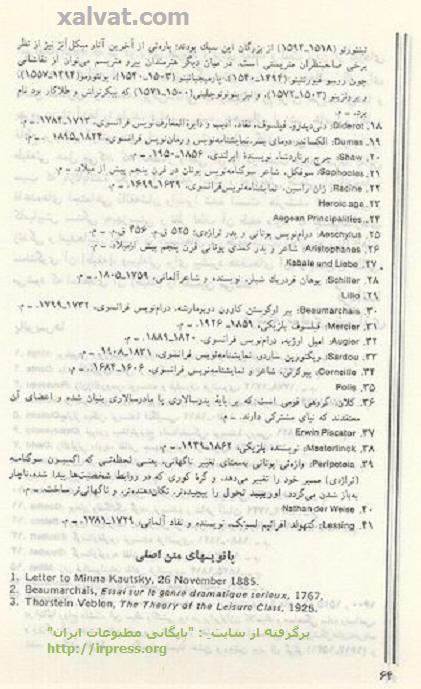 xalvat.com
تینتورتو (۱۵۱۸-۱۵۹۴) از بزرگان این سبک بودند؛ پاره‌ئی از آخرین آثار میکل‌آنژ نیز از نظر
برخی صاحبنظران منریستی است. در میان دیگر هنرمندان پیرو منریسم می‌توان از نقاشانی
چون روسو فیورنتینو (۱۴۹۴-۱۵۴۰)، پارمیجیانینو (۱۵۰۳-۱۵۴۰)، پونتورمو (۱۴۹۴-۱۵۵۷)،
و برونزینو (۱۵۰۳-۱۵۷۲)، و نیز بنونوتوچلینی (۱۵۰۰-۱۵۷۱) که پیکرتراش و طلاکار بود نام
برد. ـ م.
۱۸. Diderot: دنی‌دیدرو، فیلسوف، نقاد، ادیب و دایرةالمعارف‌نویس فرانسوی، ۱۷۱۳-۱۷۸۴. ـ م.
۱۹. Dumas: الکساندر دومای پسر، نمایشنامه‌نویس و رمان‌نویس فرانسوی، ۱۸۲۴-۱۸۹۵. ـ م.
۲۰. Shaw: جرج برناردشا، نویسندهٔ ایرلندی، ۱۸۵۶-۱۹۵۰. ـ م.
۲۱. Sophocles: سوفکل، شاعر سوگنامه‌نویس یونان در قرن پنجم پیش از میلاد. ـ م.
۲۲. Racine: ژان راسین، نمایشنامه‌نویس فرانسوی، ۱۶۳۹-۱۶۹۹. ـ م.
۲۳. Heroic age
۲۴. Aegean Principalities
۲۵. Aeschylus: درام‌نویس یونانی و پدر تراژدی؛ ۵۲۵ ق.م. - ۴۵۶ ق.م. ـ م.
۲۶. Aristophanes: شاعر و پدر کمدی یونانی قرن پنجم پیش ازمیلاد. ـ م.
۲۷. Kabale und Liebe
۲۸. Schiller: یوهان فردریک شیلر، نویسنده و شاعر آلمانی، ۱۷۵۹-۱۸۰۵. ـ م.
۲۹. Lillo
۳۰. Beaumarchais: پیر اوگوستن کارون دوبومارشه، درام‌نویس فرانسوی، ۱۷۳۲-۱۷۹۹. ـ م.
۳۱. Mercier: فیلسوف بلژیکی، ۱۸۵۱- ۱۹۲۶. ـ م.
۳۲. Augier: امیل اوژیه، درام‌نویس فرانسوی، ۱۸۲۰-۱۸۸۹. ـ م.
۳۳. Sardou: ویکتورین ساردو، نمایشنامه‌نویس فرانسوی، ۱۸۳۱-۱۹۰۸. ـ م.
۳۴. Corneille: پیرکرنی، شاعر و نمایشنامه‌نویس فرانسوی، ۱۶۰۶-۱۶۸۴. ـ م.
۳۵. Polis
۳۶. کلان: گروهی قومی است که بر پایهٔ پدرسالاری یا مادرسالاری بنیان شده و اعضای آن
معتقدند که نیای مشترکی دارند. ـ م.
۳۷. Erwin Piscator
۳۸. Maeterlinck: نویسنده بلژیکی، ۱۸۶۲-۱۹۴۹. ـ م.
۳۹. Peripeteia: واژه‌ئی یونانی به‌معنای تغییر ناگهانی، یعنی لحظه‌ئی که آکسیون سوگنامه
(تراژدی) مسیر خود را تغییر می‌دهد، و گرهٔ کوری که در روابط شخصیت‌ها پیدا شده، ناچار
به‌باز شدن می‌گردد. اوریپید تحول را پیچیده‌تر، تکان‌دهنده‌تر، و ناگهانی‌تر ساخت. ـ م.
۴۰. Nathan der Weise
۴۱. Lessing: گتهولد افرائیم لسینگ، نویسنده و نقاد آلمانی، ۱۷۲۹-۱۷۸۱. ـ م.
پانویسهای متن اصلی
1. Letter to Minna Kautsky, 26 November 1885.
2. Beaumarchais, Essai sur le genre dramatique serieux, 1767.
3. Thorstein Veblen, The Theory of the Leisure Class, 1925.
برگرفته از سایت : "بایگانی مطبوعات ایران"
http://irpress.org
۶۴